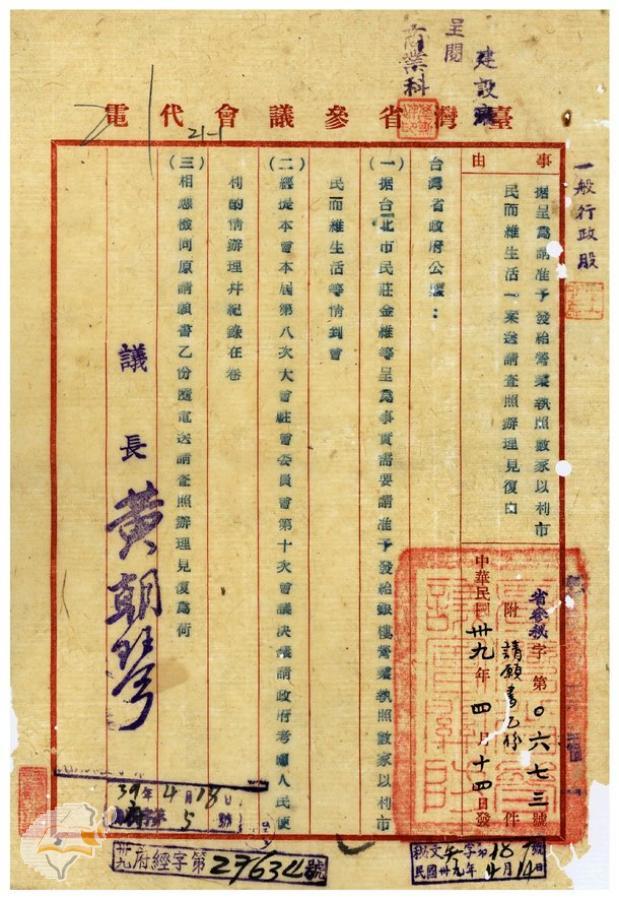 呈閱
建設廳
商業科
臺灣省參議會代電
21-1
一般行政股
事由
据呈為請准予發給營業執照數家以利市
民而維生活一案送請查照辦理見復由
省參秘字第〇六七三號
附請願書乙份件
中華民國卅九年四月十四日發
台灣省政府公鑒：
（一）据台北市民莊金維等呈為事實需要請准予發給銀樓營業執照數家以利市
民而維生活等情到會
（二）經提本會本屆第八次大會駐會委員會第十次會議決議請政府考慮人民便
利酌情辦理并紀錄在卷
（三）相應檢同原請願書乙份隨電送請查照辦理見復為荷
議長 黃朝琴
39年4月18日
5號
卅九府經字第27634號
民國卅九年4月14日